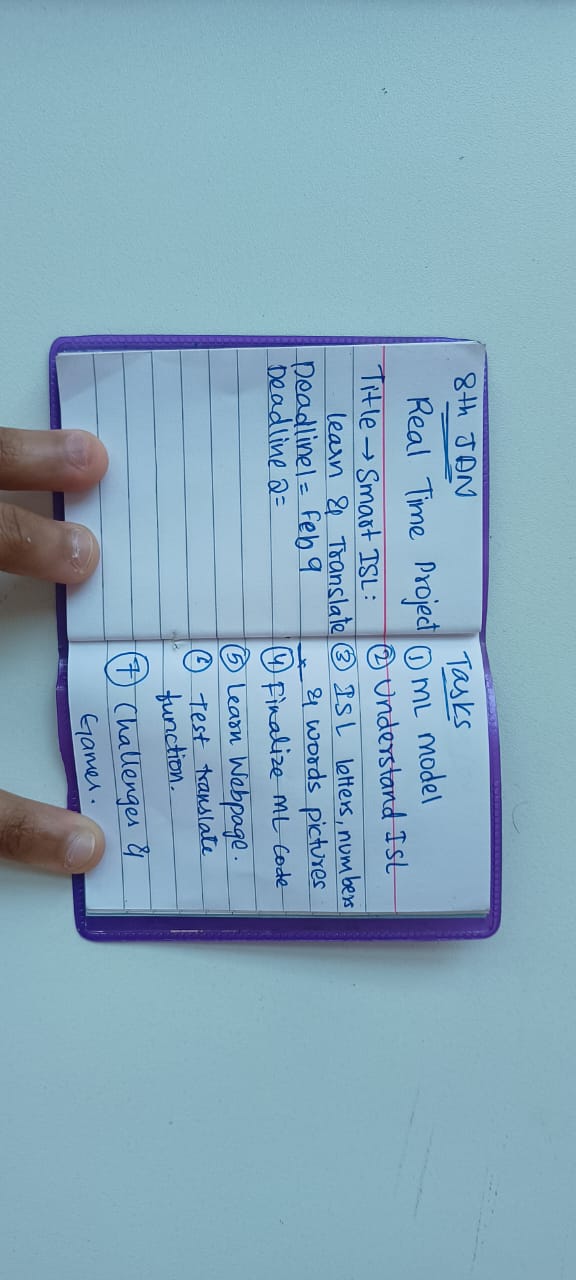 8th JAN
Real Time Project
Title → Smart ISL:
learn & Translate
Deadline1 = Feb 9
Deadline 2 =
Tasks
① ML model
② Understand ISL
③ ISL letters, numbers
& words pictures
④ Finalize ML code
⑤ Learn Webpage.
⑥ Test translate
function.
⑦ Challenges &
Games.